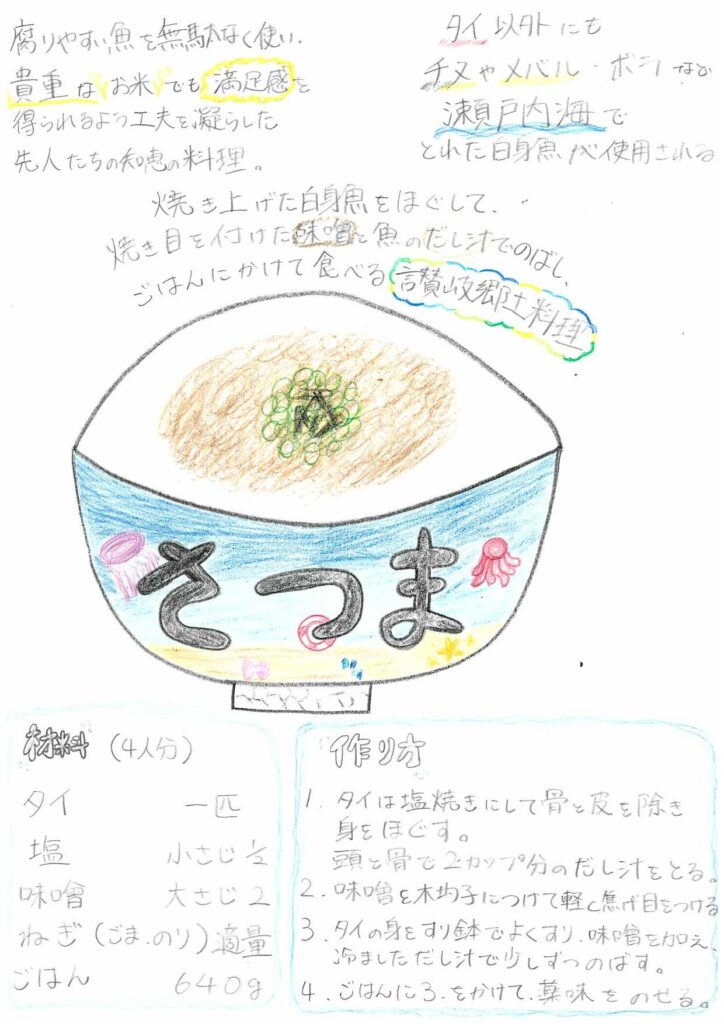 腐りやすい魚を無駄なく使い、
貴重なお米でも満足感を
得られるよう工夫を凝らした
先人たちの知恵の料理。
タイ以外にも
チヌやメバル・ボラなど
瀬戸内海で
とれた白身魚が使用される
焼き上げた白身魚をほぐして、
焼き目を付けた味噌と魚のだし汁でのばし、
ごはんにかけて食べる讃岐郷土料理
さつま
材料(4人分)
タイ 一匹
塩 小さじ1/2
味噌 大さじ2
ねぎ(ごま・のり)適量
ごはん 640g
作り方
1. タイは塩焼きにして骨と皮を除き
身をほぐす。
頭と骨で2カップ分のだし汁をとる。
2. 味噌を木杓子につけて軽く焦げ目をつける
3. タイの身をすり鉢でよくすり、味噌を加え、
冷ましただし汁で少しずつのばす。
4. ごはんに3.をかけて、薬味をのせる。